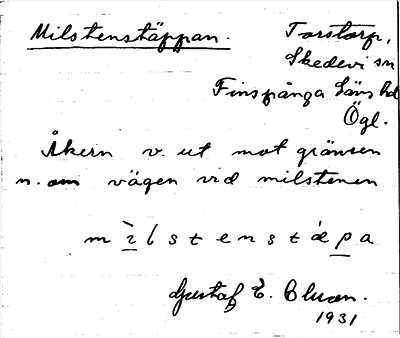 Milstenstäppan.
Torstorp,
Skedevi sn
Finspånga Läns hd
Ögl.
Åkern v. ut mot gränsen
n. om vägen vid milstenen
m ì l s t e n s t ǽ p a
Gustaf E.
1931